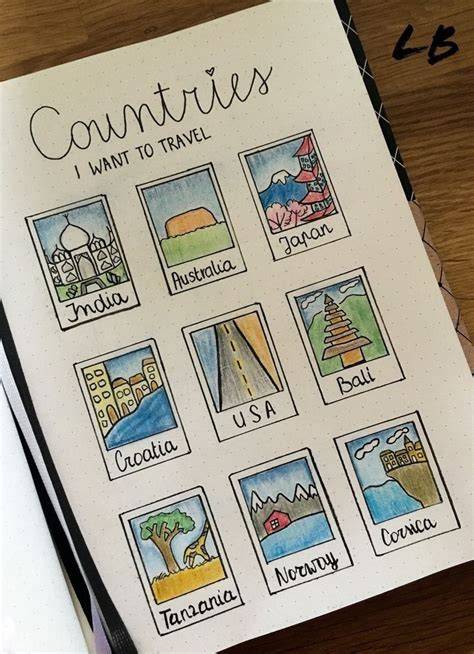 LB
Countries
I WANT TO TRAVEL
India
Australia
Japan
Croatia
USA
Bali
Tanzania
Norway
Corsica